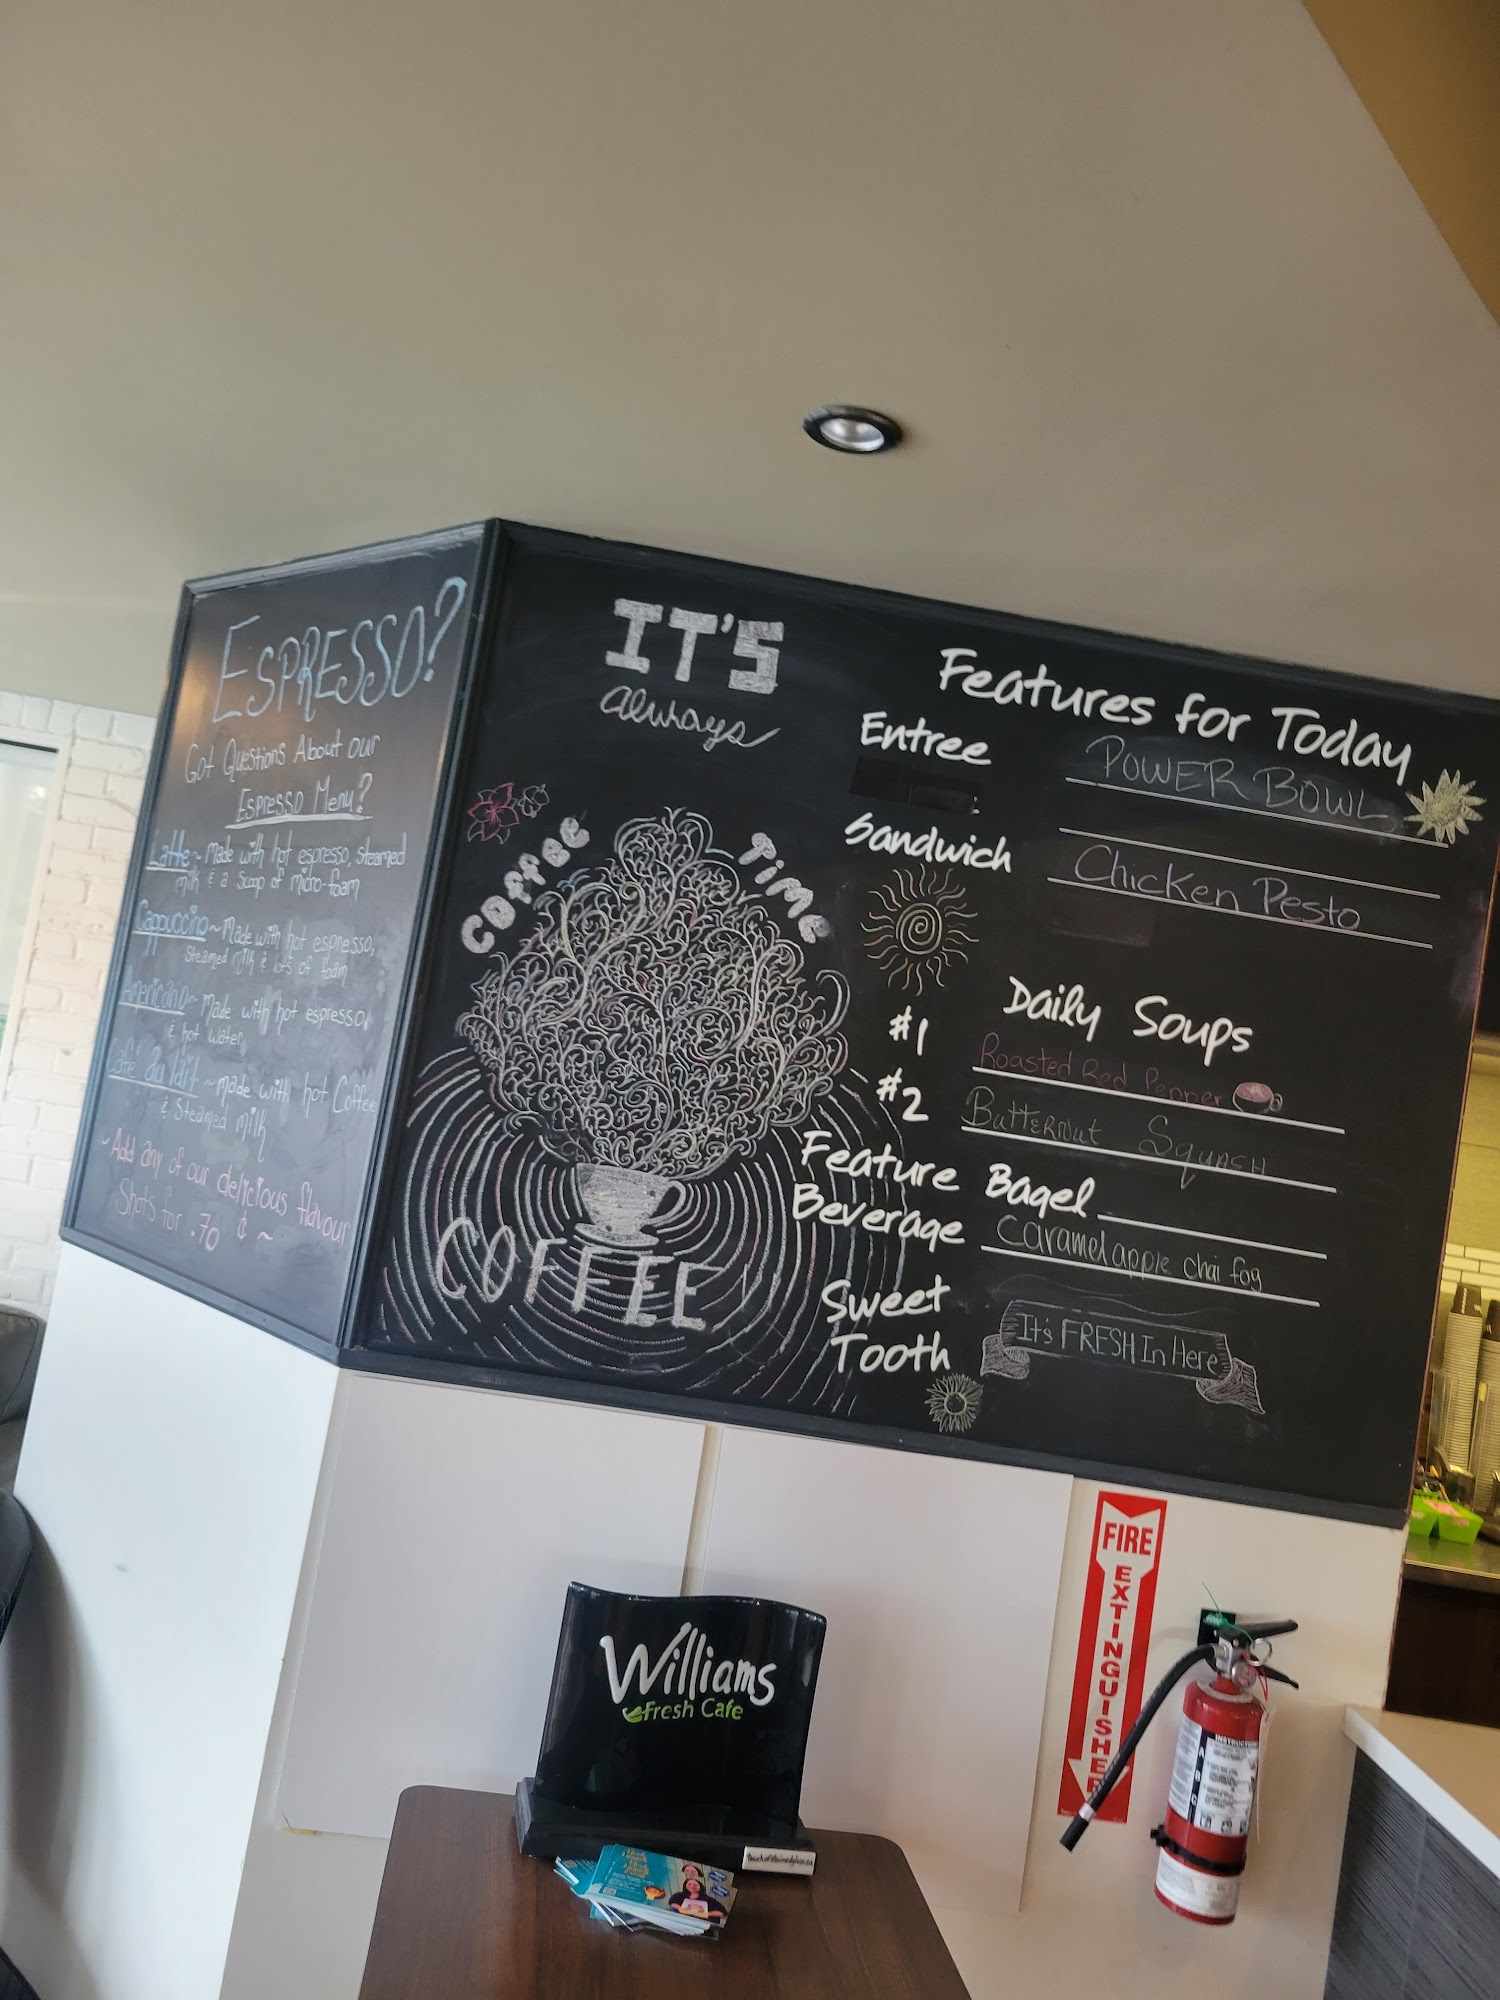 ESPRESSO?
Got Questions About our
Espresso Menu?
Latte ~ Made with hot espresso, Steamed
milk & a scoop of micro-foam
Cappuccino ~ Made with hot espresso,
Steamed milk & lots of foam
Americano ~ Made with hot espresso,
& hot water
~ made with hot Coffee
& Steamed milk
~ Add any of our delicious flavour
Shots for .70 ¢ ~
IT'S
always
Coffee Time
COFFEE
Features for Today
Entree POWER BOWL
Sandwich Chicken Pesto
Daily Soups
#1 Roasted Red Pepper
#2 Butternut Squash
Feature Bagel
Beverage Caramel apple chai fog
Sweet
Tooth
It's FRESH In Here
Williams
Fresh Cafe
FIRE
EXTINGUISHER
INSTRUCTIONS
A
B
C